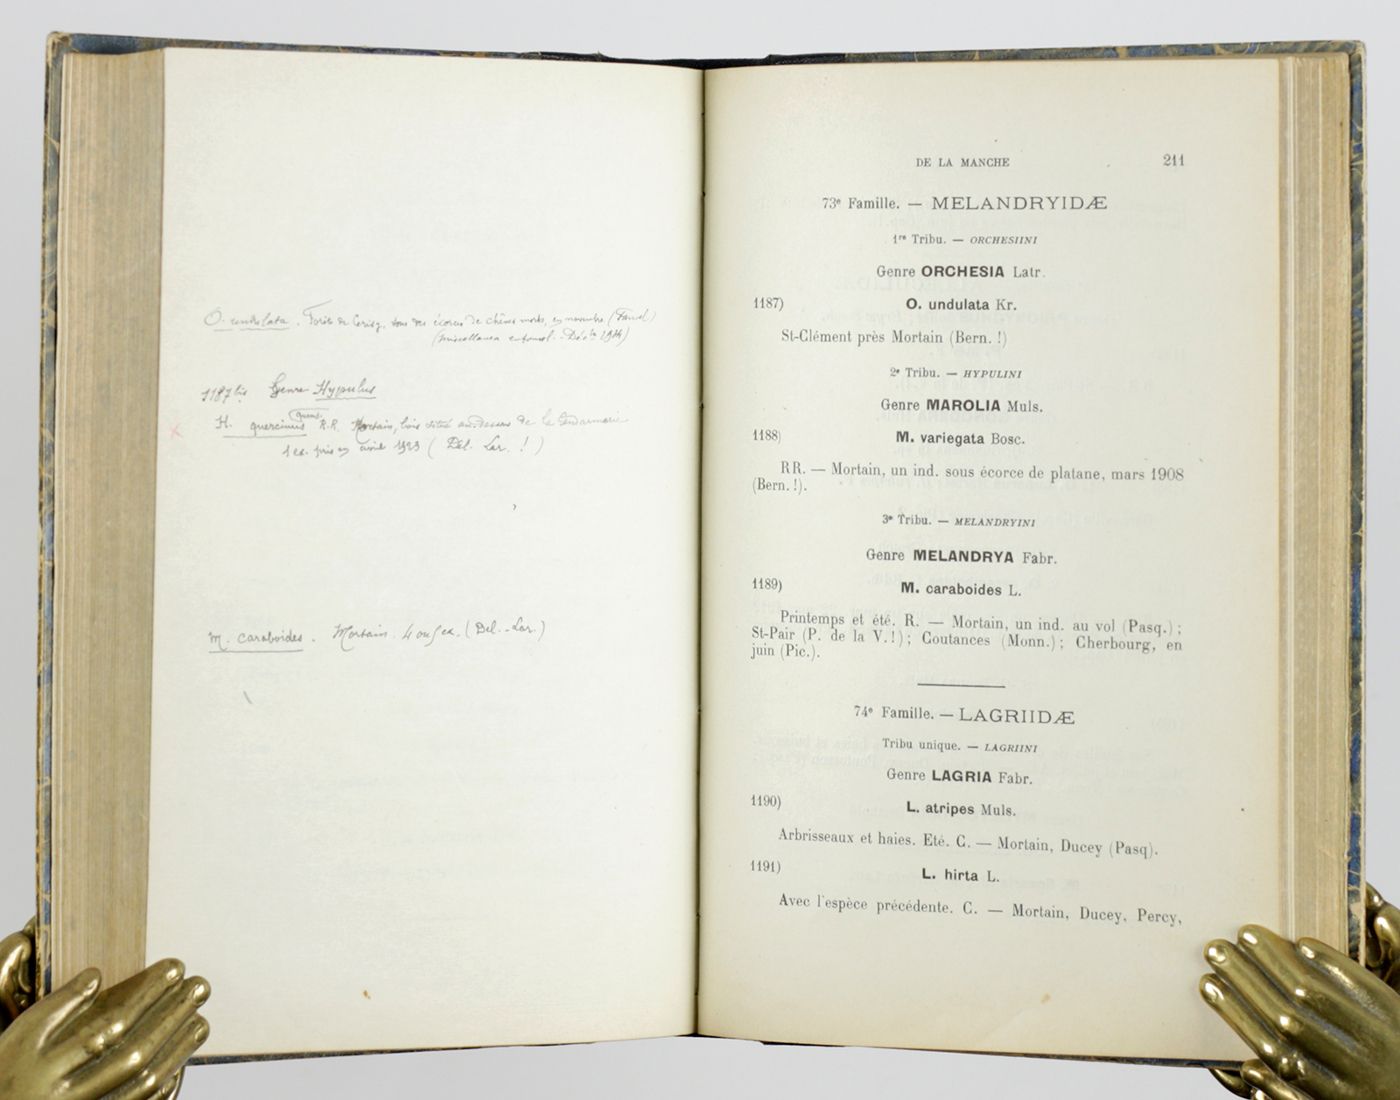 O. undulata. Forêt de Cerisy, sous des écorces de chênes morts, en novembre (Fauvel)
(Miscellanea entomol. - Déc. 1914)
1187 bis Genre Hypulus
H. quercinus Quens. R.R. Mortain, bois situé au-dessus de la Gendarmerie
1 ex. pris en avril 1923 (Del. Lar. !)
M. caraboides. Mortain. 4 ou 5 ex. (Del. - Lar.)
DE LA MANCHE 211
73e Famille. — MELANDRYIDÆ
1re Tribu. — ORCHESIINI
Genre ORCHESIA Latr.
1187) O. undulata Kr.
St-Clément près Mortain (Bern. !)
2e Tribu. — HYPULINI
Genre MAROLIA Muls.
1188) M. variegata Bosc.
RR. — Mortain, un ind. sous écorce de platane, mars 1908
(Bern. !).
3e Tribu. — MELANDRYINI
Genre MELANDRYA Fabr.
1189) M. caraboides L.
Printemps et été. R. — Mortain, un ind. au vol (Pasq.) ;
St-Pair (P. de la V. !) ; Coutances (Monn.) ; Cherbourg, en
juin (Pic.).
74e Famille. — LAGRIIDÆ
Tribu unique. — LAGRIINI
Genre LAGRIA Fabr.
1190) L. atripes Muls.
Arbrisseaux et haies. Eté. C. — Mortain, Ducey (Pasq).
1191) L. hirta L.
Avec l'espèce précédente. C. — Mortain, Ducey, Percy,